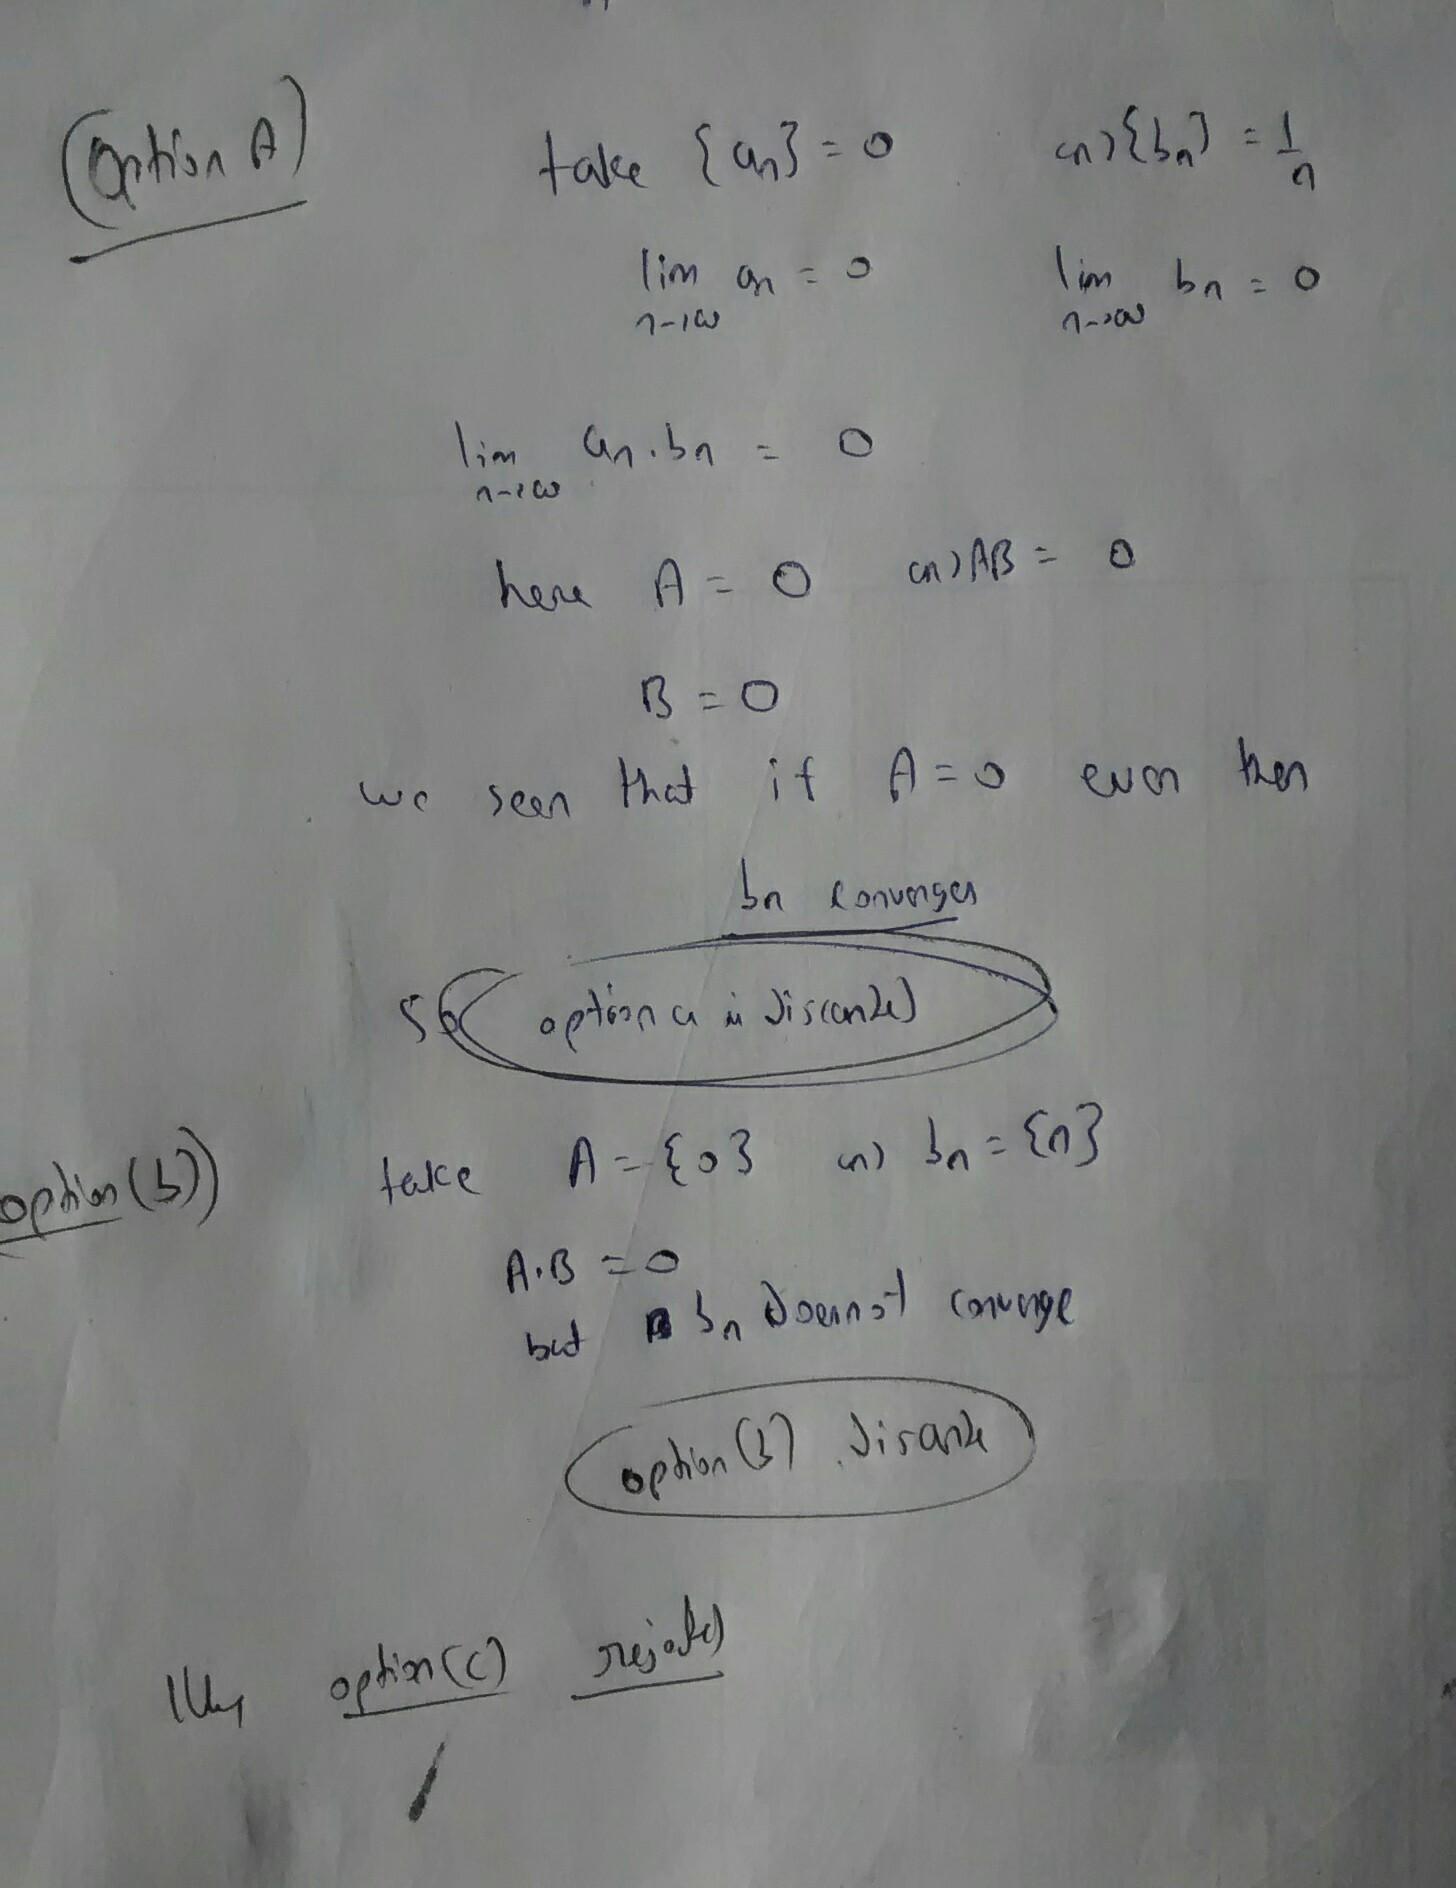 (Option A)
take {an} = 0 and {bn} = 1/n
lim an = 0 lim bn = 0
n→∞ n→∞
lim an.bn = 0
n→∞
here A = 0 and AB = 0
B = 0
we seen that if A = 0 even then
bn converges
So option a is discarded
option (b)) take A = {0} and bn = {n}
A.B = 0
but bn doesnot converge
option (b) discard
llly option (c) rejected